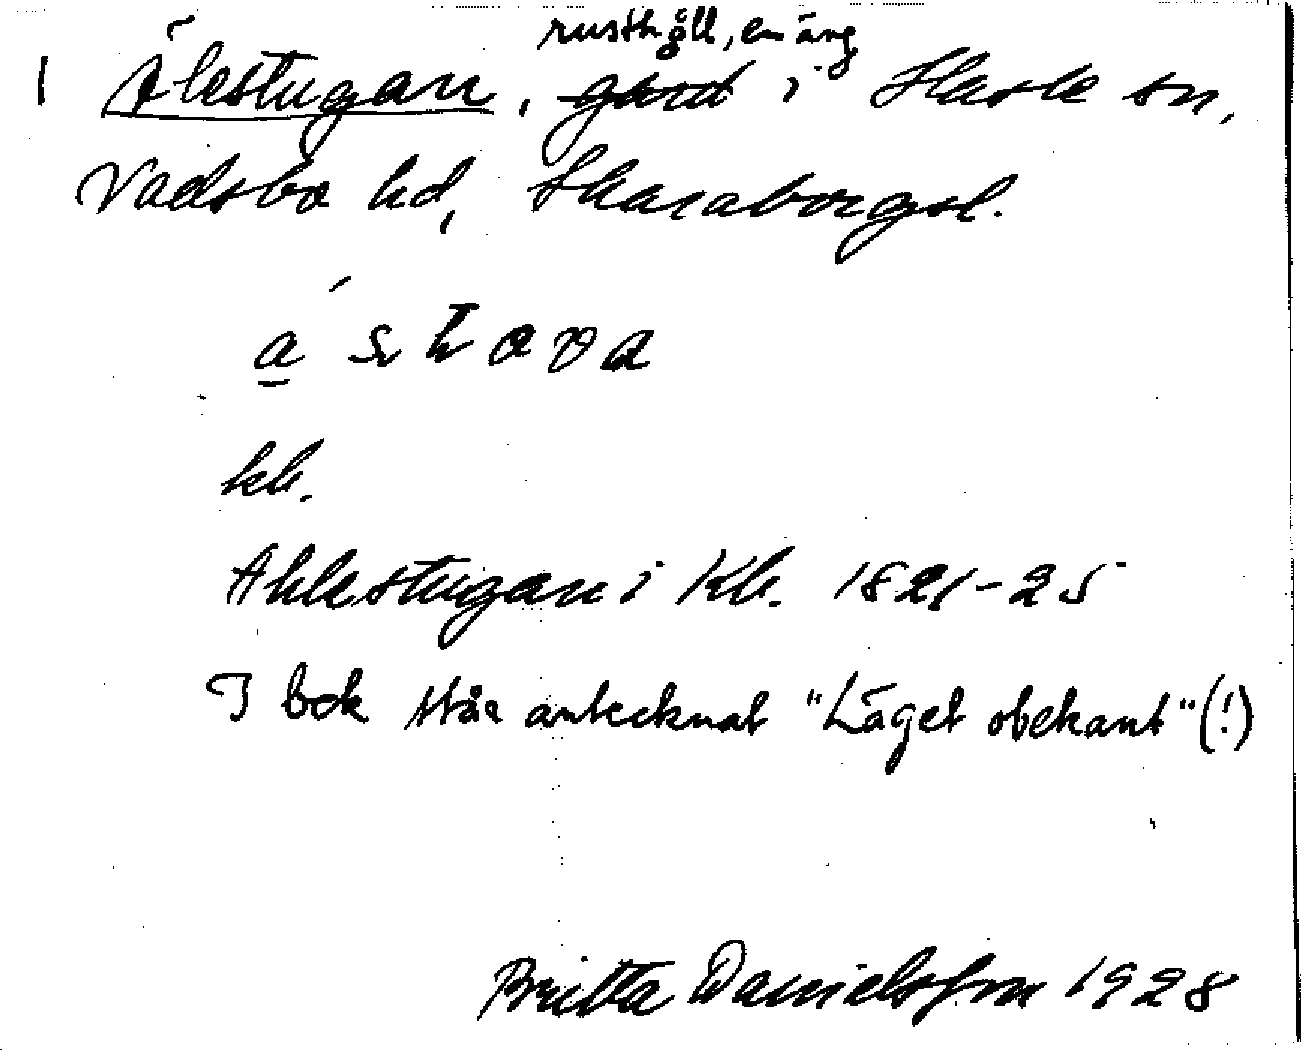 rusthåll, en äng
1 Ålestugan, gård i Hassle sn,
Vadsbo hd, Skaraborgsl.
kb.
Ahlestugan i Kb. 1821-25
I bok står antecknat "Läget obekant" (!)
Britta Danielsson 1928